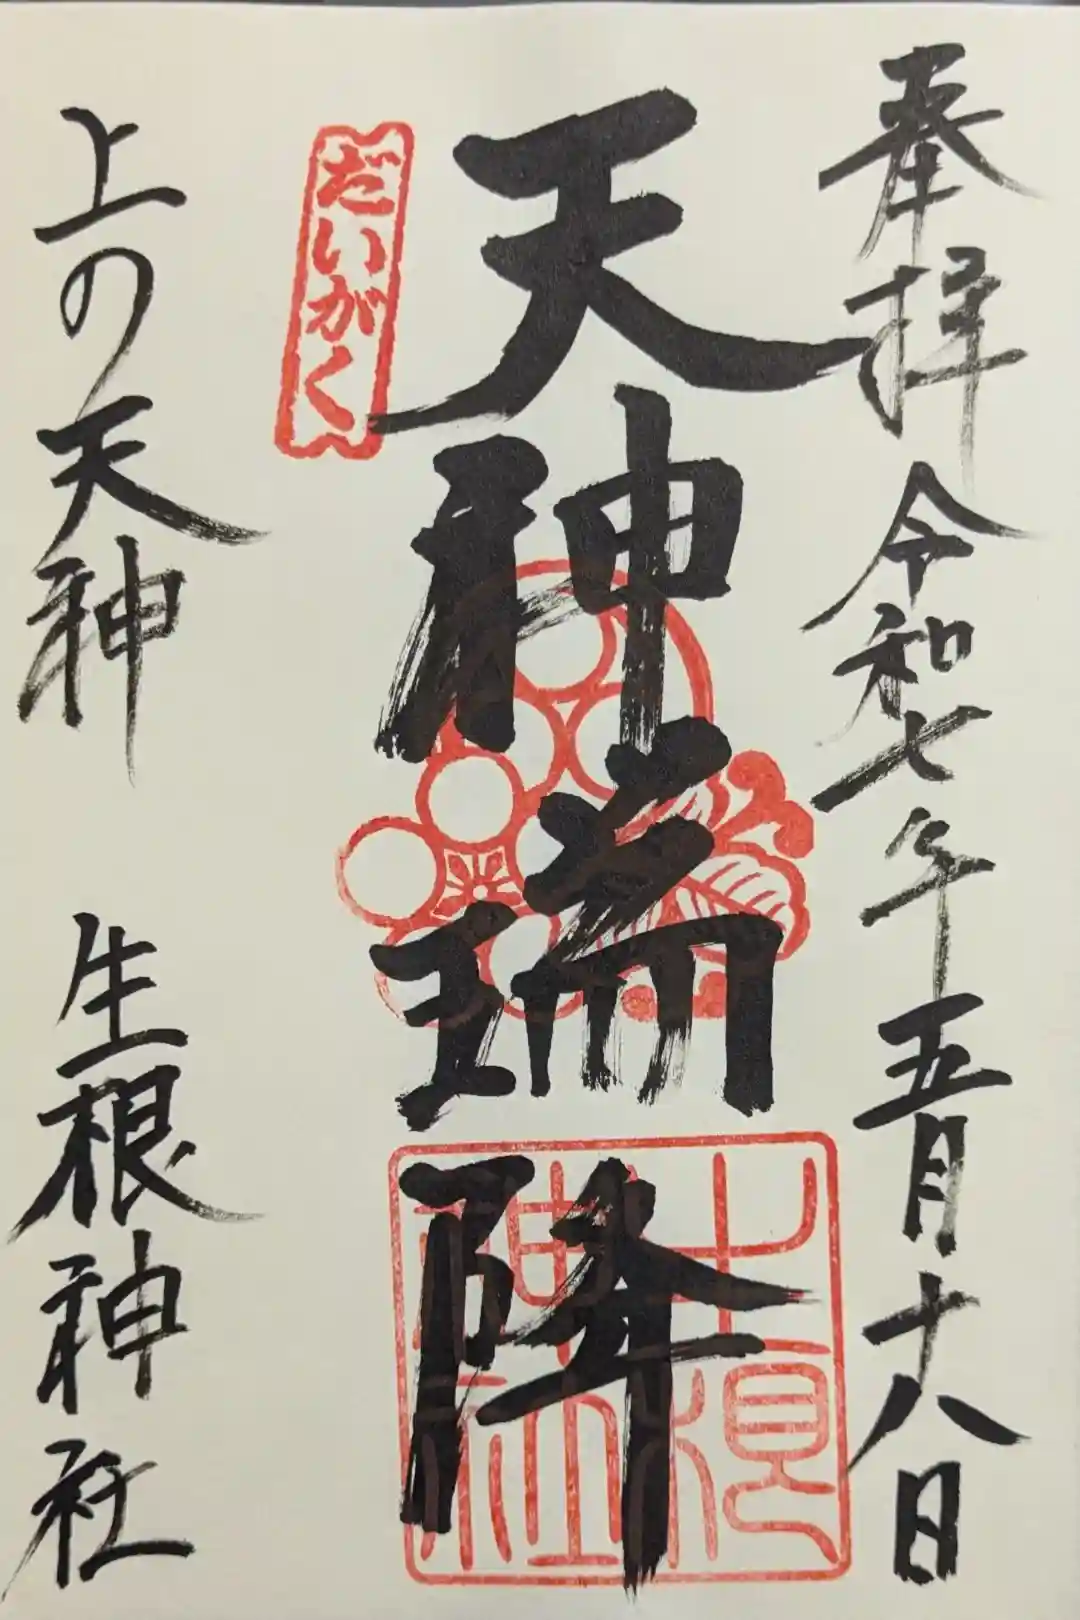 奉拝 令和七年五月十八日
天神瑞降
だいがく
上の天神 生根神社
生根神社